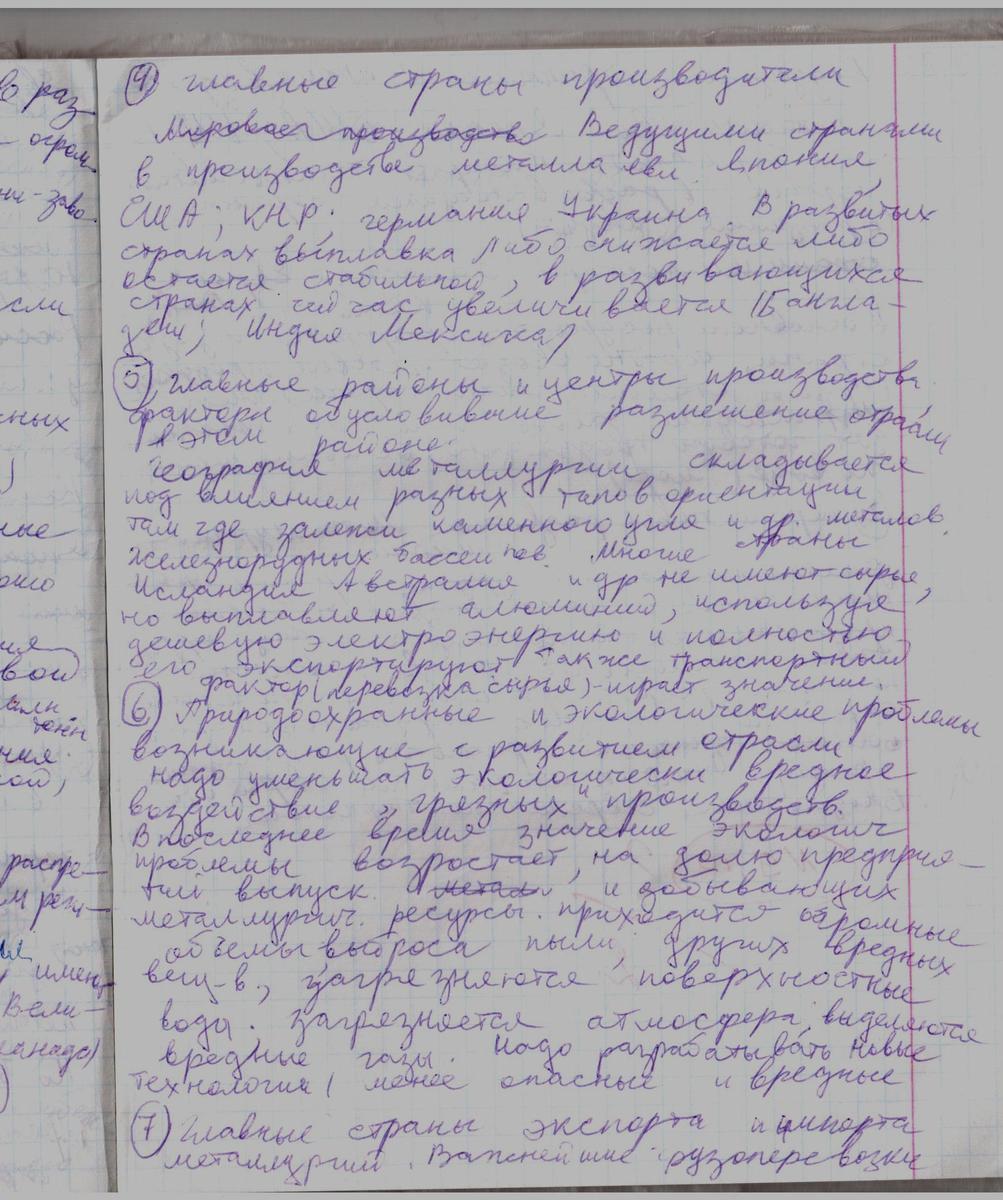 во раз-
- огром
ни-заво.
сли
сных
)
ные
ния
вой
млн
тенн
ния.
сой,
распре-
м реги-
имеющ
Вели-
канада)
)
④ главные страны производители
Мировое производство Ведущими странами
в производстве металла явл. Япония,
США; КНР; германия Украина. В развитых
странах выплавка либо снижается либо
остается стабильной, в развивающихся
странах сейчас увеличивается (Бангла-
деш; Индия Мексика)
⑤ главные районы и центры производства
факторы обусловившие размещение отрасли
в этом районе.
География металлургии складывается
под влиянием разных типов ориентации
там где залежи каменного угля и др. металов
железнорудных бассейнов. Многие страны
Исландия Австралия и др не имеют сырья,
но выплавляют алюминий, используя
дешевую электроэнергию и полностью
его экспортируют также транспортный
фактор (перевозка сырья) - играет значение.
⑥ Природоохранные и экологические проблемы
возникающие с развитием отрасли
надо уменьшать экологически вредное
воздействие „грязных" производств.
В последнее время значение экологич
проблемы возростает, на долю предприя-
тий выпуск. метал и добывающих
металлургич. ресурсы. приходится огромные
объемы выброса пыли, других вредных
вещ-в., загрязняются поверхностные
воды. загрязняется атмосфера, выделяются
вредные газы. Надо разрабатывать новые
технологии (менее опасные и вредные
⑦ Главные страны экспорта и импорта
металлургии. Важнейшие грузоперевозки